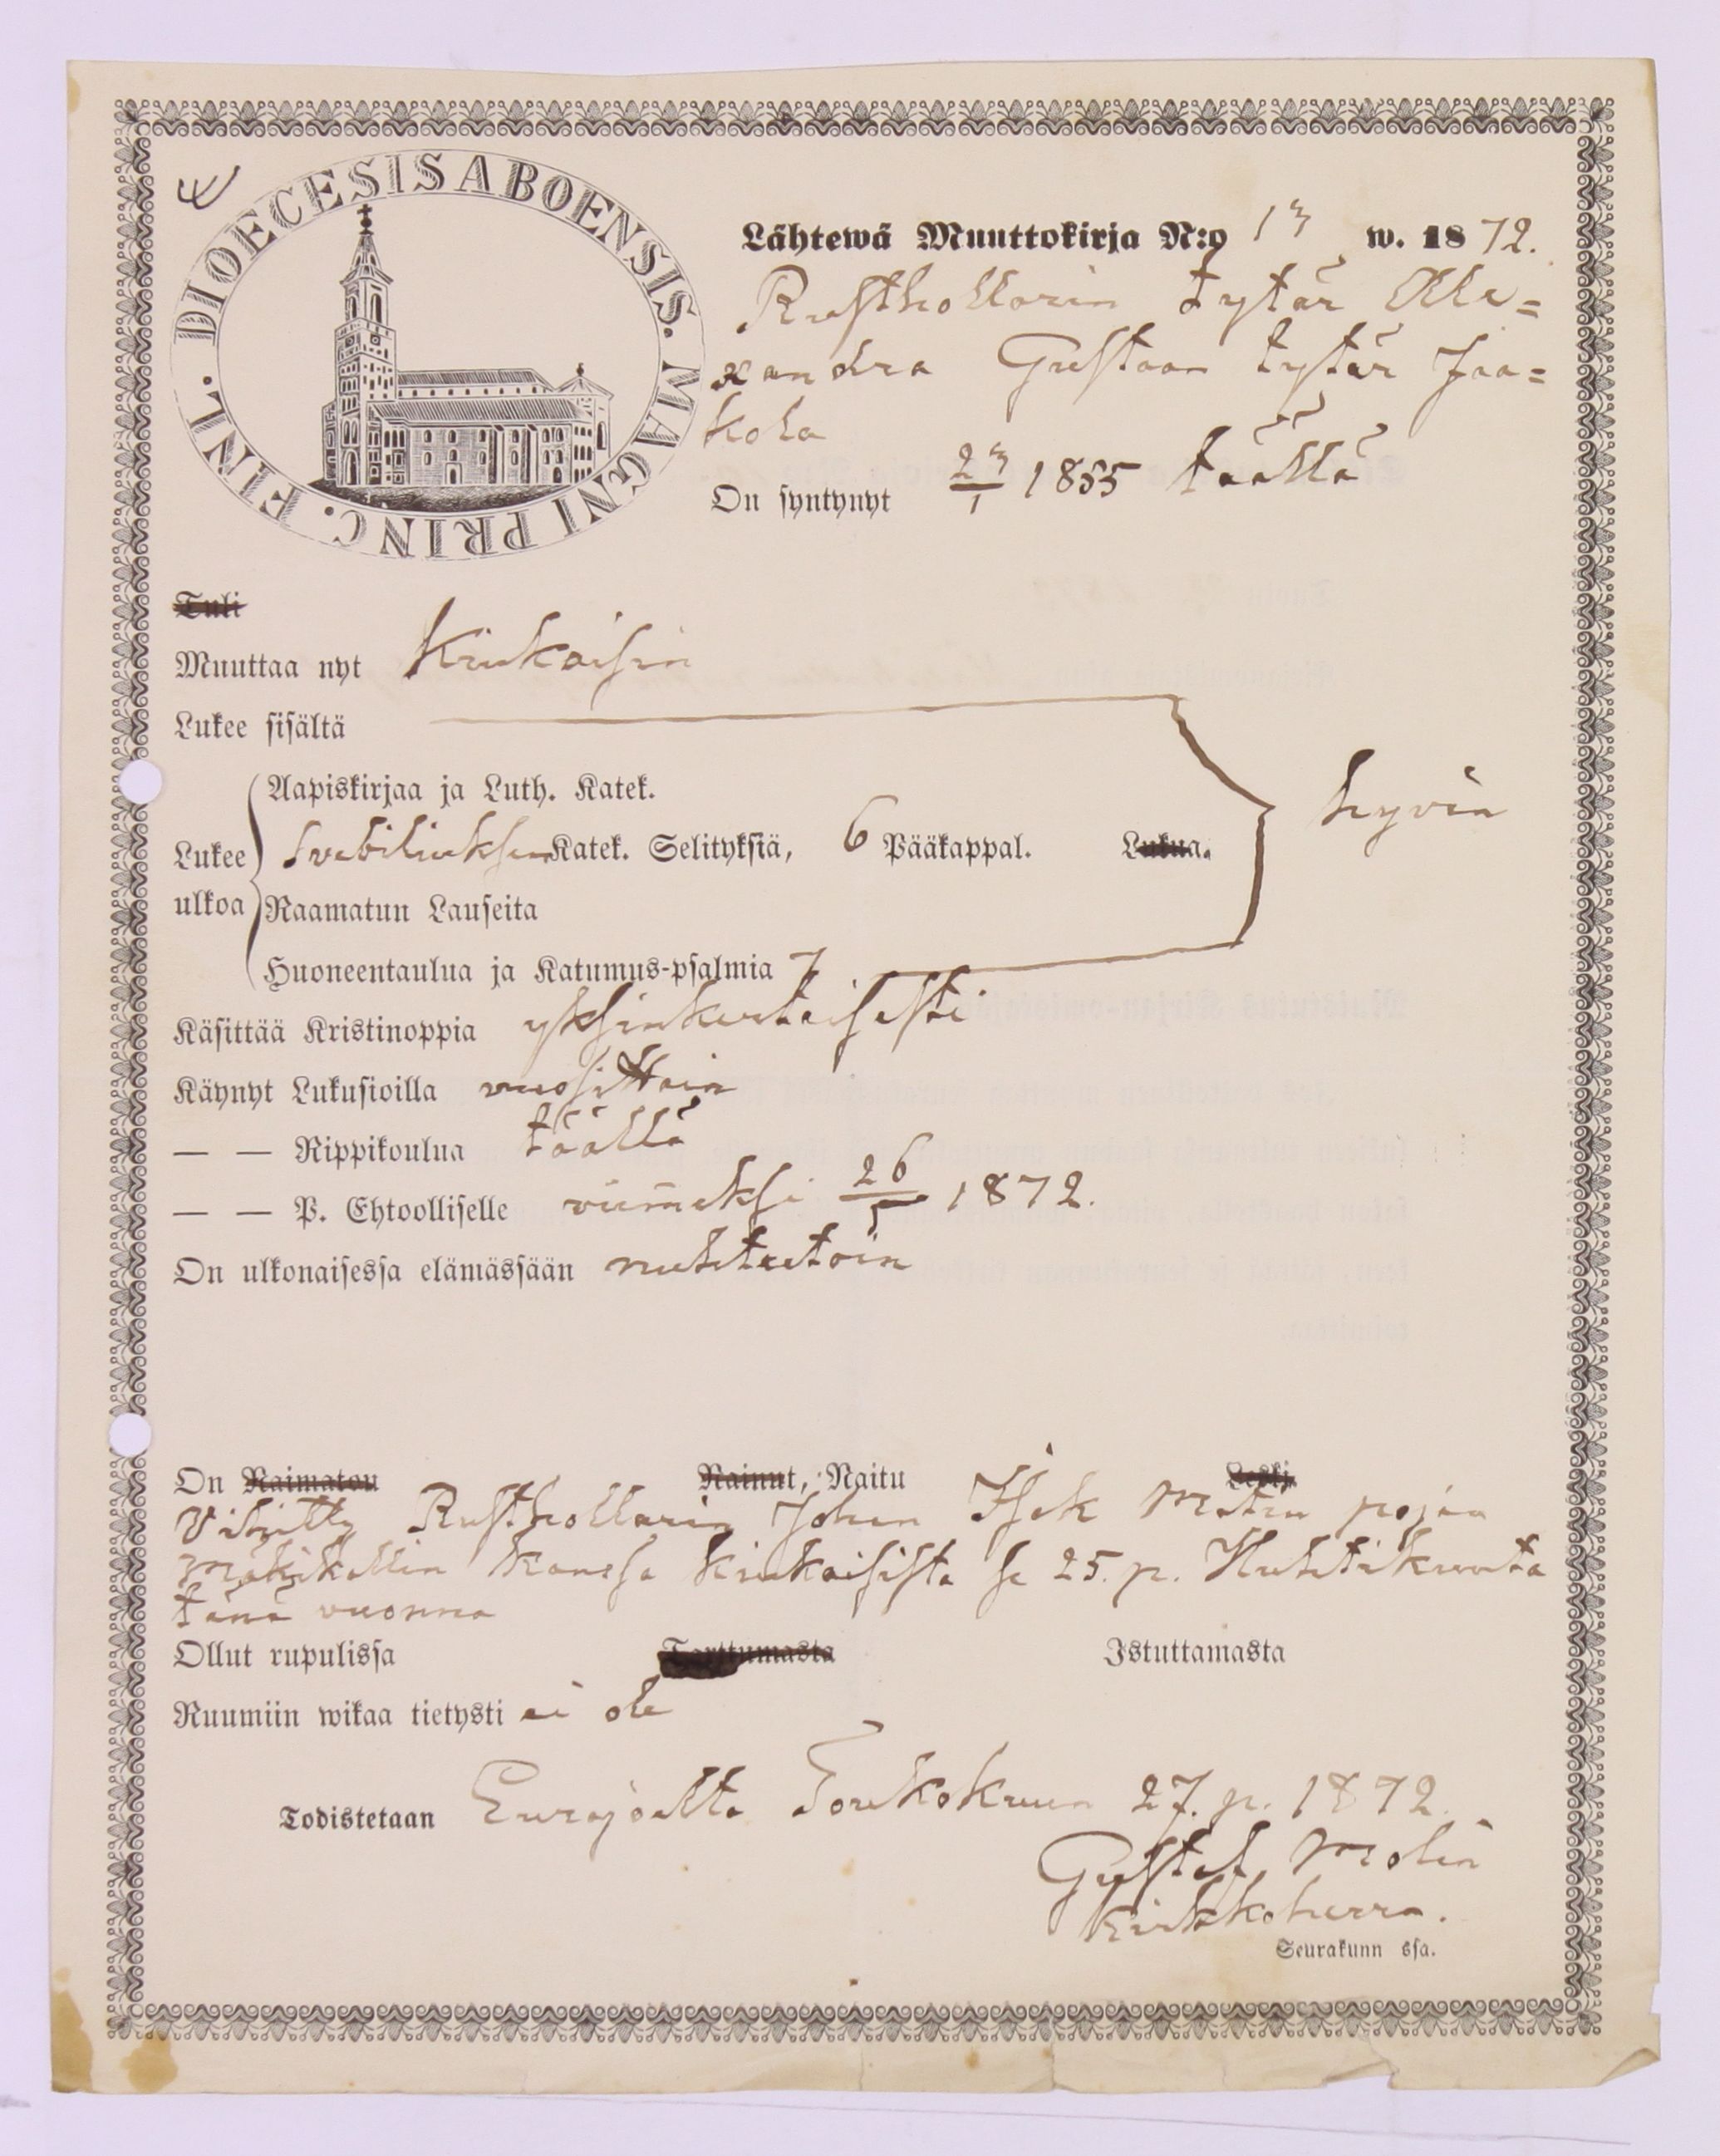 DIOECESIS ABOENSIS. MAGNI PRINC. FINL.
Lähtewä Muuttokirja N:o 13 w. 1872.
Rusthollarin tytär Ale=
xandra Gustaan tytär Jaa=
kola
On syntynyt 23/1 1855 täällä
Tuli
Muuttaa nyt Kiukaisiin
Lukee sisältä
Aapiskirjaa ja Luth. Katek.
hyvin
Lukee ulkoa Svebiliuksen Katek. Selityksiä, 6 Pääkappal. Lukua.
Raamatun Lauseita
Huoneentaulua ja Katumus-psalmia 7
Käsittää Kristinoppia yksinkertaisesti
Käynyt Lukusioilla vuosittain
— — Rippikoulua täällä
— — P. Ehtoolliselle viim̅eksi 26/5 1872.
On ulkonaisessa elämässään nuhteetoin
On Naimaton Nainut, Naitu Leski
Vihitty Rusthollarin Johan Isak Matin pojan
Mäkikallin kanssa Kiukaisista se 25. p. Huhtikuuta
tänä vuonna
Ollut rupulissa Tarttumasta Istuttamasta
Ruumiin wikaa tietysti ei ole
Todistetaan Eurajoelta Toukokuun 27. p. 1872.
Gustaf Molin
Kirkkoherra.
Seurakunn ssa.